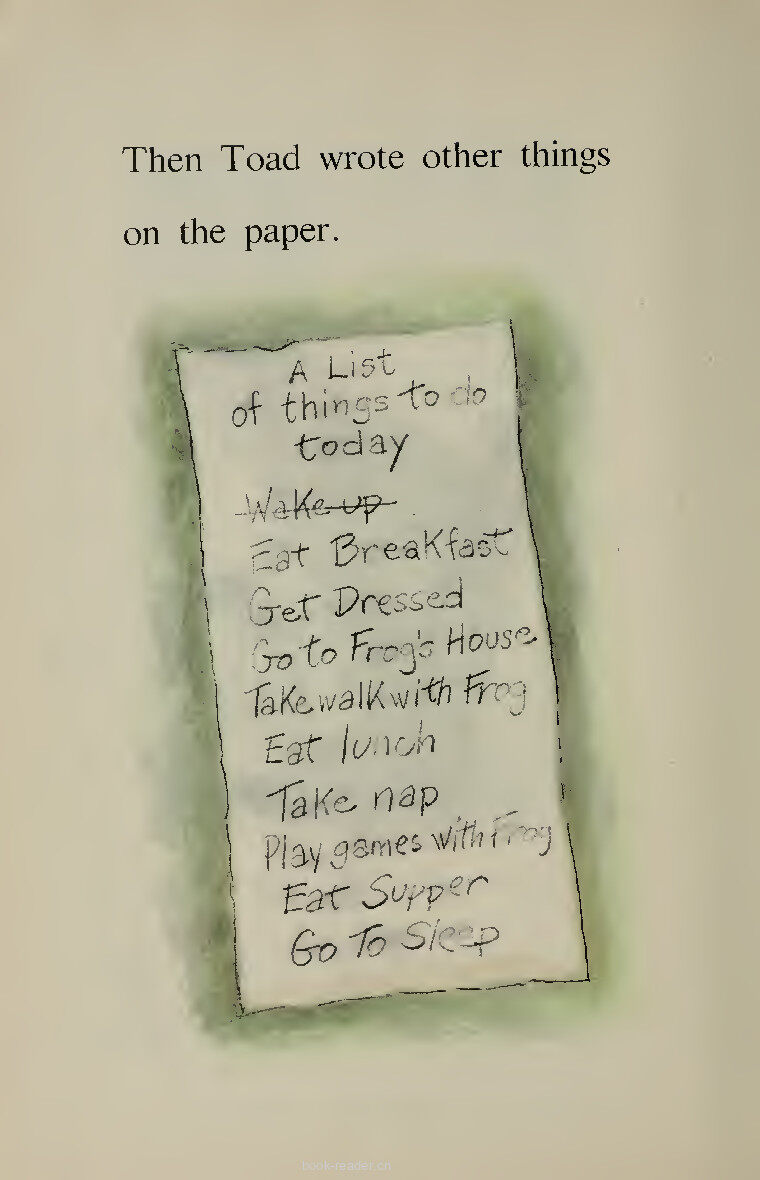 Then Toad wrote other things
on the paper.
A List
of things to do
today
Wake up
Eat Breakfast
Get Dressed
Go to Frog's House
Take walk with Frog
Eat lunch
Take nap
Play games with Frog
Eat Supper
Go To Sleep
book-reader.cn